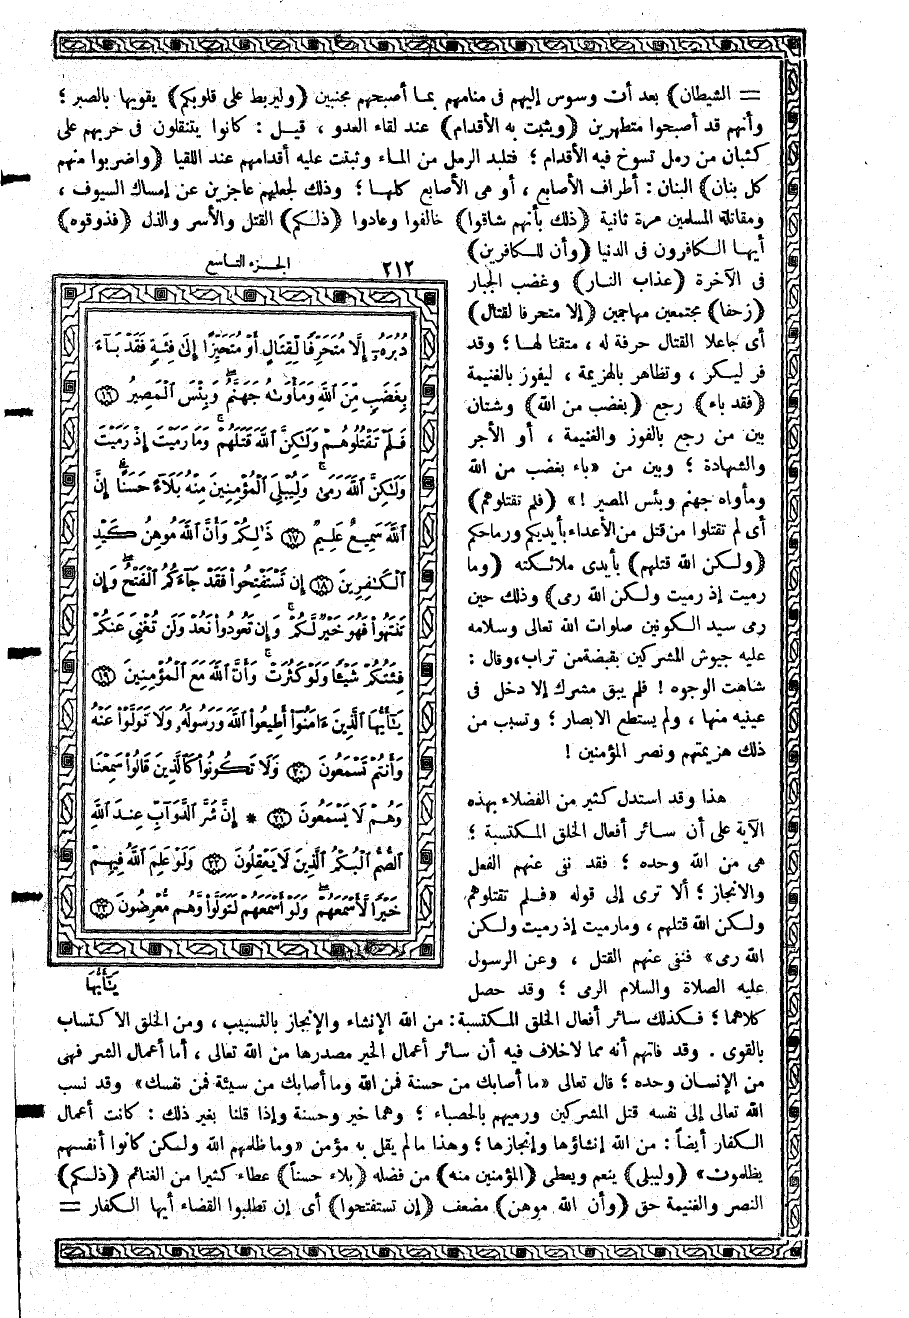 = الشيطان) بعد أن وسوس إليهم فى منامهم بما أصبحهم مجنبين (وليربط على قلوبكم) يقويها بالصبر ؛
وأنهم قد أصبحوا متطهرين (ويثبت به الأقدام) عند لقاء العدو ، قيل : كانوا يتنقلون فى حربهم على
كثبان من رمل تسوخ فيه الأقدام ؛ فتلبد الرمل من الماء وثبتت عليه أقدامهم عند اللقيا (واضربوا منهم
كل بنان) البنان : أطراف الأصابع ، أو هى الأصابع كلها ؛ وذلك لجعلهم عاجزين عن إمساك السيوف ،
ومقاتلة المسلمين مرة ثانية (ذلك بأنهم شاقوا) خالفوا وعادوا (ذلكم) القتل والأسر والذل (فذوقوه)
أيها الكافرون فى الدنيا (وأن للكافرين)
فى الآخرة (عذاب النار) وغضب الجبار
(زحفا) مجتمعين مهاجمين (إلا متحرفا لقتال)
أى جاعلا القتال حرفة له ، متقنا لها ؛ وقد
فر ليكر ، وتظاهر بالهزيمة ، ليفوز بالغنيمة
(فقد باء) رجع (بغضب من الله) وشتان
بين من رجع بالفوز والغنيمة ، أو الأجر
والشهادة ؛ وبين من «باء بغضب من الله
ومأواه جهنم وبئس المصير !» (فلم تقتلوهم)
أى لم تقتلوا من قتل من الأعداء بأيديكم ورماحكم
(ولكن الله قتلهم) بأيدى ملائكته (وما
رميت إذ رميت ولكن الله رمى) وذلك حين
رمى سيد الكونين صلوات الله تعالى وسلامه
عليه جيوش المشركين بقبضة من تراب، وقال :
شاهت الوجوه ! فلم يبق مشرك إلا دخل فى
عينيه منها ، ولم يستطع الابصار ؛ وتسبب من
ذلك هزيمتهم ونصر المؤمنين !
هذا وقد استدل كثير من الفضلاء بهذه
الآية على أن سائر أفعال الخلق المكتسبة ؛
هى من الله وحده ؛ فقد نفى عنهم الفعل
والانجاز ؛ ألا ترى إلى قوله «فلم تقتلوهم
ولكن الله قتلهم ، ومارميت إذ رميت ولكن
الله رمى» فنفى عنهم القتل ، وعن الرسول
عليه الصلاة والسلام الرمى ؛ وقد حصل
كلاهما ؛ فكذلك سائر أفعال الخلق المكتسبة : من الله الإنشاء والإنجاز بالتسبيب ، ومن الخلق الاكتساب
بالقوى . وقد فاتهم أنه مما لاخلاف فيه أن سائر أعمال الخير مصدرها من الله تعالى ، أما أعمال الشر فهى
من الإنسان وحده ؛ قال تعالى «ما أصابك من حسنة فمن الله وما أصابك من سيئة فمن نفسك» وقد نسب
الله تعالى إلى نفسه قتل المشركين ورميهم بالحصباء ؛ وهما خير وحسنة وإذا قلنا بغير ذلك : كانت أعمال
الكفار أيضاً : من الله إنشاؤها وإنجازها ؛ وهذا مالم يقل به مؤمن «وما ظلمهم الله ولكن كانوا أنفسهم
يظلمون» (وليبلى) ينعم ويعطى (المؤمنين منه) من فضله (بلاء حسناً) عطاء كثيرا من الغنائم (ذلكم)
النصر والغنيمة حق (وأن الله موهن) مضعف (إن تستفتحوا) أى إن تطلبوا القضاء أيها الكفار =
٢١٢ الجزء التاسع
دُبُرَهُۥٓ إِلَّا مُتَحَرِّفًا لِّقِتَالٍ أَوْ مُتَحَيِّزًا إِلَىٰ فِئَةٍ فَقَدْ بَآءَ
بِغَضَبٍ مِّنَ ٱللَّهِ وَمَأْوَىٰهُ جَهَنَّمُ ۖ وَبِئْسَ ٱلْمَصِيرُ ۝١٦
فَلَمْ تَقْتُلُوهُمْ وَلَـٰكِنَّ ٱللَّهَ قَتَلَهُمْ ۚ وَمَا رَمَيْتَ إِذْ رَمَيْتَ
وَلَـٰكِنَّ ٱللَّهَ رَمَىٰ ۚ وَلِيُبْلِىَ ٱلْمُؤْمِنِينَ مِنْهُ بَلَآءً حَسَنًا ۚ إِنَّ
ٱللَّهَ سَمِيعٌ عَلِيمٌ ۝١٧ ذَٰلِكُمْ وَأَنَّ ٱللَّهَ مُوهِنُ كَيْدِ
ٱلْكَـٰفِرِينَ ۝١٨ إِن تَسْتَفْتِحُوا۟ فَقَدْ جَآءَكُمُ ٱلْفَتْحُ ۖ وَإِن
تَنتَهُوا۟ فَهُوَ خَيْرٌ لَّكُمْ ۖ وَإِن تَعُودُوا۟ نَعُدْ وَلَن تُغْنِىَ عَنكُمْ
فِئَتُكُمْ شَيْـًٔا وَلَوْ كَثُرَتْ ۚ وَأَنَّ ٱللَّهَ مَعَ ٱلْمُؤْمِنِينَ ۝١٩
يَـٰٓأَيُّهَا ٱلَّذِينَ ءَامَنُوٓا۟ أَطِيعُوا۟ ٱللَّهَ وَرَسُولَهُۥ وَلَا تَوَلَّوْا۟ عَنْهُ
وَأَنتُمْ تَسْمَعُونَ ۝٢٠ وَلَا تَكُونُوا۟ كَٱلَّذِينَ قَالُوا۟ سَمِعْنَا
وَهُمْ لَا يَسْمَعُونَ ۝٢١ * إِنَّ شَرَّ ٱلدَّوَآبِّ عِندَ ٱللَّهِ
ٱلصُّمُّ ٱلْبُكْمُ ٱلَّذِينَ لَا يَعْقِلُونَ ۝٢٢ وَلَوْ عَلِمَ ٱللَّهُ فِيهِمْ
خَيْرًا لَّأَسْمَعَهُمْ ۖ وَلَوْ أَسْمَعَهُمْ لَتَوَلَّوا۟ وَّهُم مُّعْرِضُونَ ۝٢٣
يَـٰٓأَيُّهَا